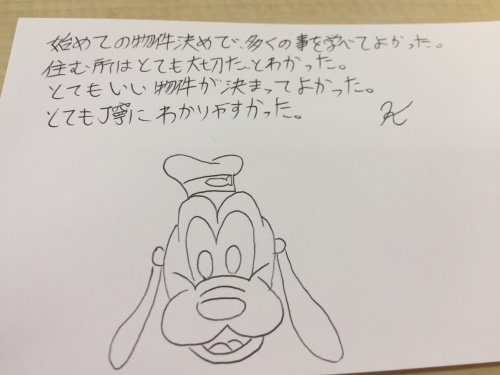 始めての物件決めで、多くの事を学べてよかった。
住む所はとても大切だとわかった。
とてもいい物件が決まってよかった。
とても丁寧にわかりやすかった。 K